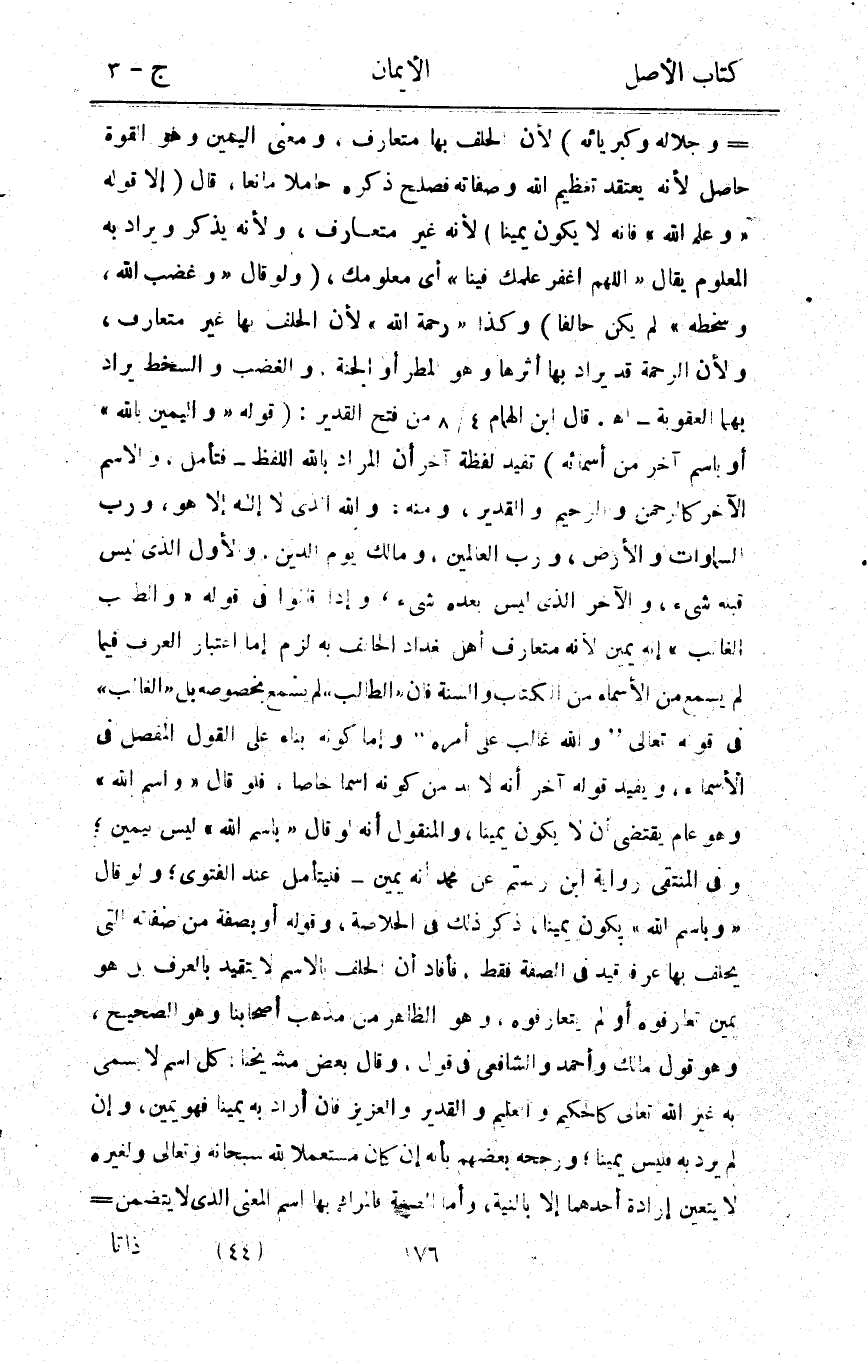 كتاب الأصل الأيمان ج - ٣
= و جلاله وكبريائه ) لأن الحلف بها متعارف ، و معنى اليمين و هو القوة
حاصل لأنه يعتقد تعظيم الله و صفاته فصلح ذكره حاملا مانعا ، قال ( إلا قوله
« و علم الله » فانه لا يكون يمينا ) لأنه غير متعارف ، و لأنه يذكر و يراد به
المعلوم يقال « اللهم اغفر علمك فينا » أى معلومك ، ( و لو قال « و غضب الله ،
و سخطه » لم يكن حالفا ) و كذا « رحمة الله » لأن الحلف بها غير متعارف ،
و لأن الرحمة قد يراد بها أثرها و هو المطر أو الجنة . و الغضب و السخط يراد
بهما العقوبة ــ اه . قال ابن الهمام ٤ / ٨ من فتح القدير : ( قوله « و اليمين بالله »
أو باسم آخر من أسمائه ) تفيد لفظة آخر أن المراد بالله اللفظ ــ فتأمل . و الاسم
الآخر كالرحمن و الرحيم و القدير ، و منه : و الله الذى لا إله إلا هو ، و رب
السماوات و الأرض ، و رب العالمين ، و مالك يوم الدين . و الأول الذى ليس
قبله شىء ، و الآخر الذى ليس بعده شىء ؛ و إذا قالوا فى قوله « و الطالب
الغالب » إنه يمين لأنه متعارف أهل بغداد الحالف به لزم إما اعتبار العرف فيما
لم يسمع من الأسماء من الكتاب و السنة فان « الطالب » لم يسمع بخصوصه بل « الغالب »
فى قوله تعالى '' و الله غالب على أمره '' و إما كونه بناء على القول المفصل فى
الأسماء ، و يفيد قوله آخر أنه لا بد من كونه اسما خاصا ، فلو قال « و اسم الله »
و هو عام يقتضى أن لا يكون يمينا ، و المنقول أنه لو قال « باسم الله » ليس بيمين ؛
و فى المنتقى رواية ابن رستم عن محمد أنه يمين ــ فليتأمل عند الفتوى ؛ و لو قال
« و باسم الله » يكون يمينا ، ذكر ذلك فى الخلاصة ، و قوله أو بصفة من صفاته التى
يحلف بها عرفا قيد فى الصفة فقط . فأفاد أن الحلف بالاسم لا يتقيد بالعرف بل هو
يمين تعارفوه أو لم يتعارفوه ، و هو الظاهر من مذهب أصحابنا و هو الصحيح ،
و هو قول مالك و أحمد و الشافعى فى قول . و قال بعض مشايخنا : كل اسم لا يسمى
به غير الله تعالى كالحكيم و العليم و القدير و العزيز فان أراد به يمينا فهو يمين ، و إن
لم يرد به فليس يمينا ؛ و رجحه بعضهم بأنه إن كان مستعملا لله سبحانه و تعالى و لغيره
لا يتعين إرادة أحدهما إلا بالنية ، و أما الصفة فالمراد بها اسم المعنى الذى لا يتضمن =
١٧٦ ( ٤٤ ) ذاتا